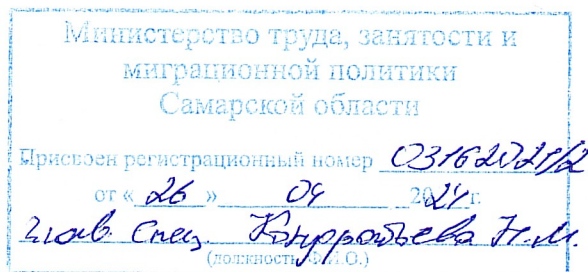 Министерство труда, занятости и
миграционной политики
Самарской области
Присвоен регистрационный номер 03162021/2
от « 26 » 04 2021 г.
глав. спец. Кондратьева Н.М
(должность, Ф.И.О.)